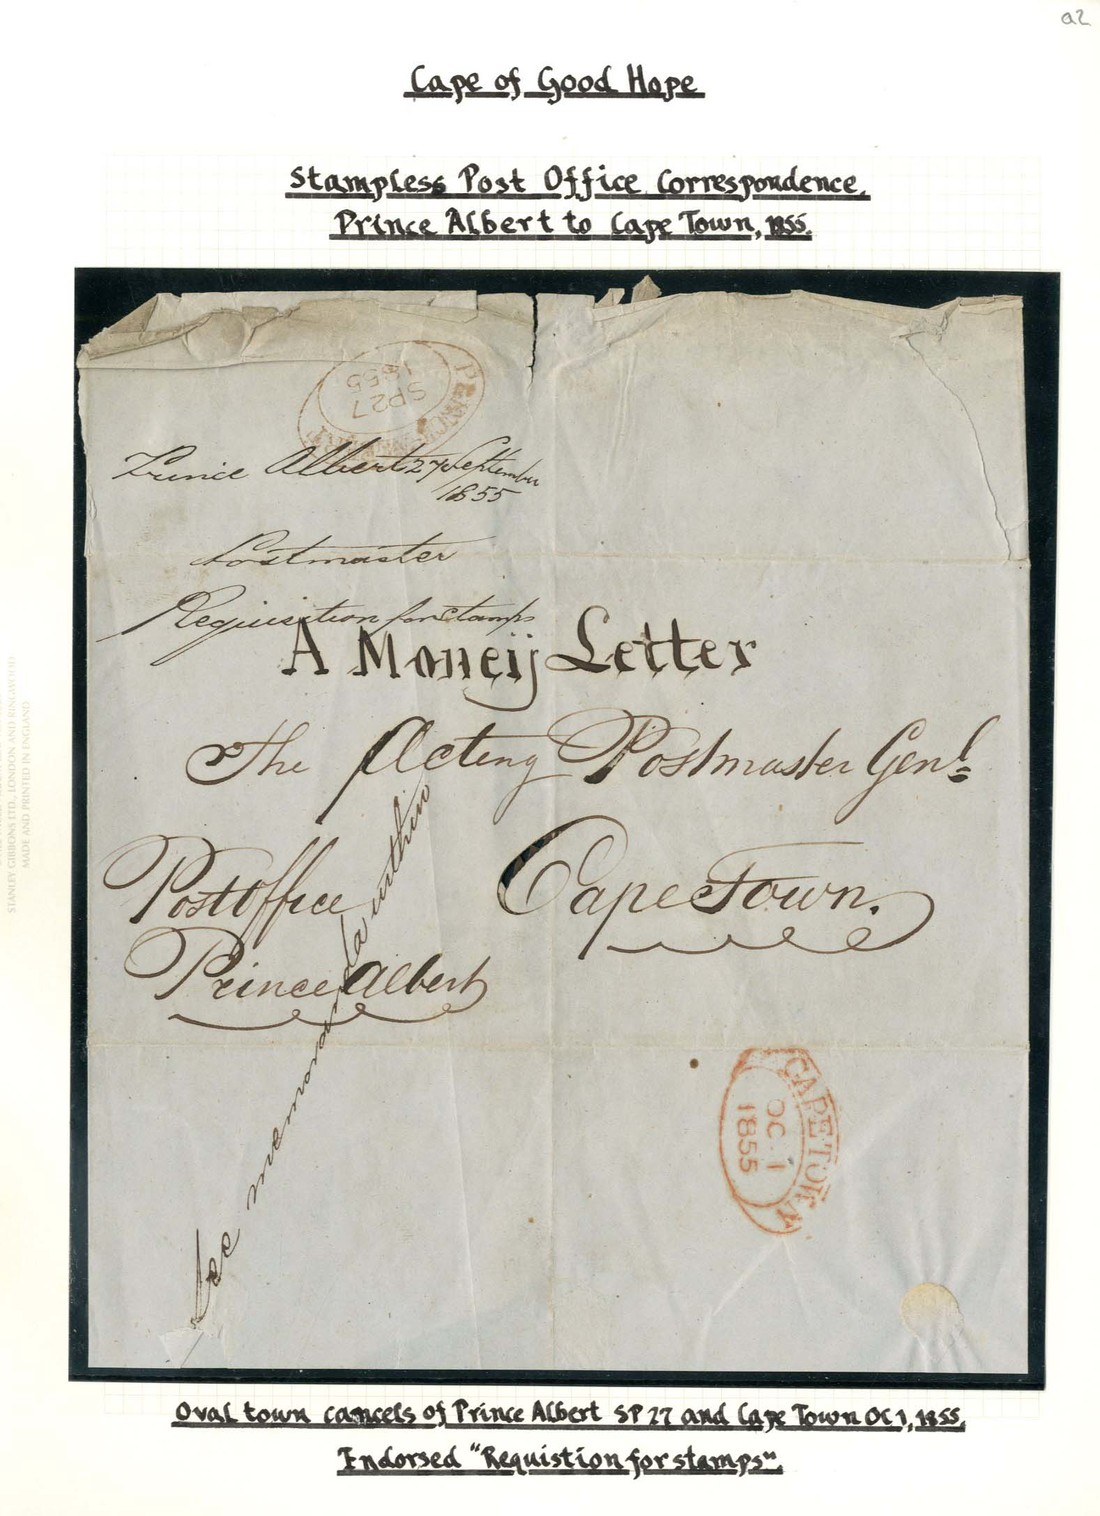 a2
Cape of Good Hope
Stampless Post Office Correspondence.
Prince Albert to Cape Town, 1855.
PRINCE ALBERT
SP 27
1855
Prince Albert 27 September
1855
Postmaster
Requisition for stamps
A Moneij Letter
The Acting Postmaster Genl
Post Office
Cape Town.
Prince Albert
See memoranda within
CAPE TOWN
OC 1
1855
STANLEY GIBBONS LTD., LONDON AND RINGWOOD
MADE AND PRINTED IN ENGLAND
Oval town cancels of Prince Albert SP 27 and Cape Town OC 1, 1855.
Endorsed "Requistion for stamps".